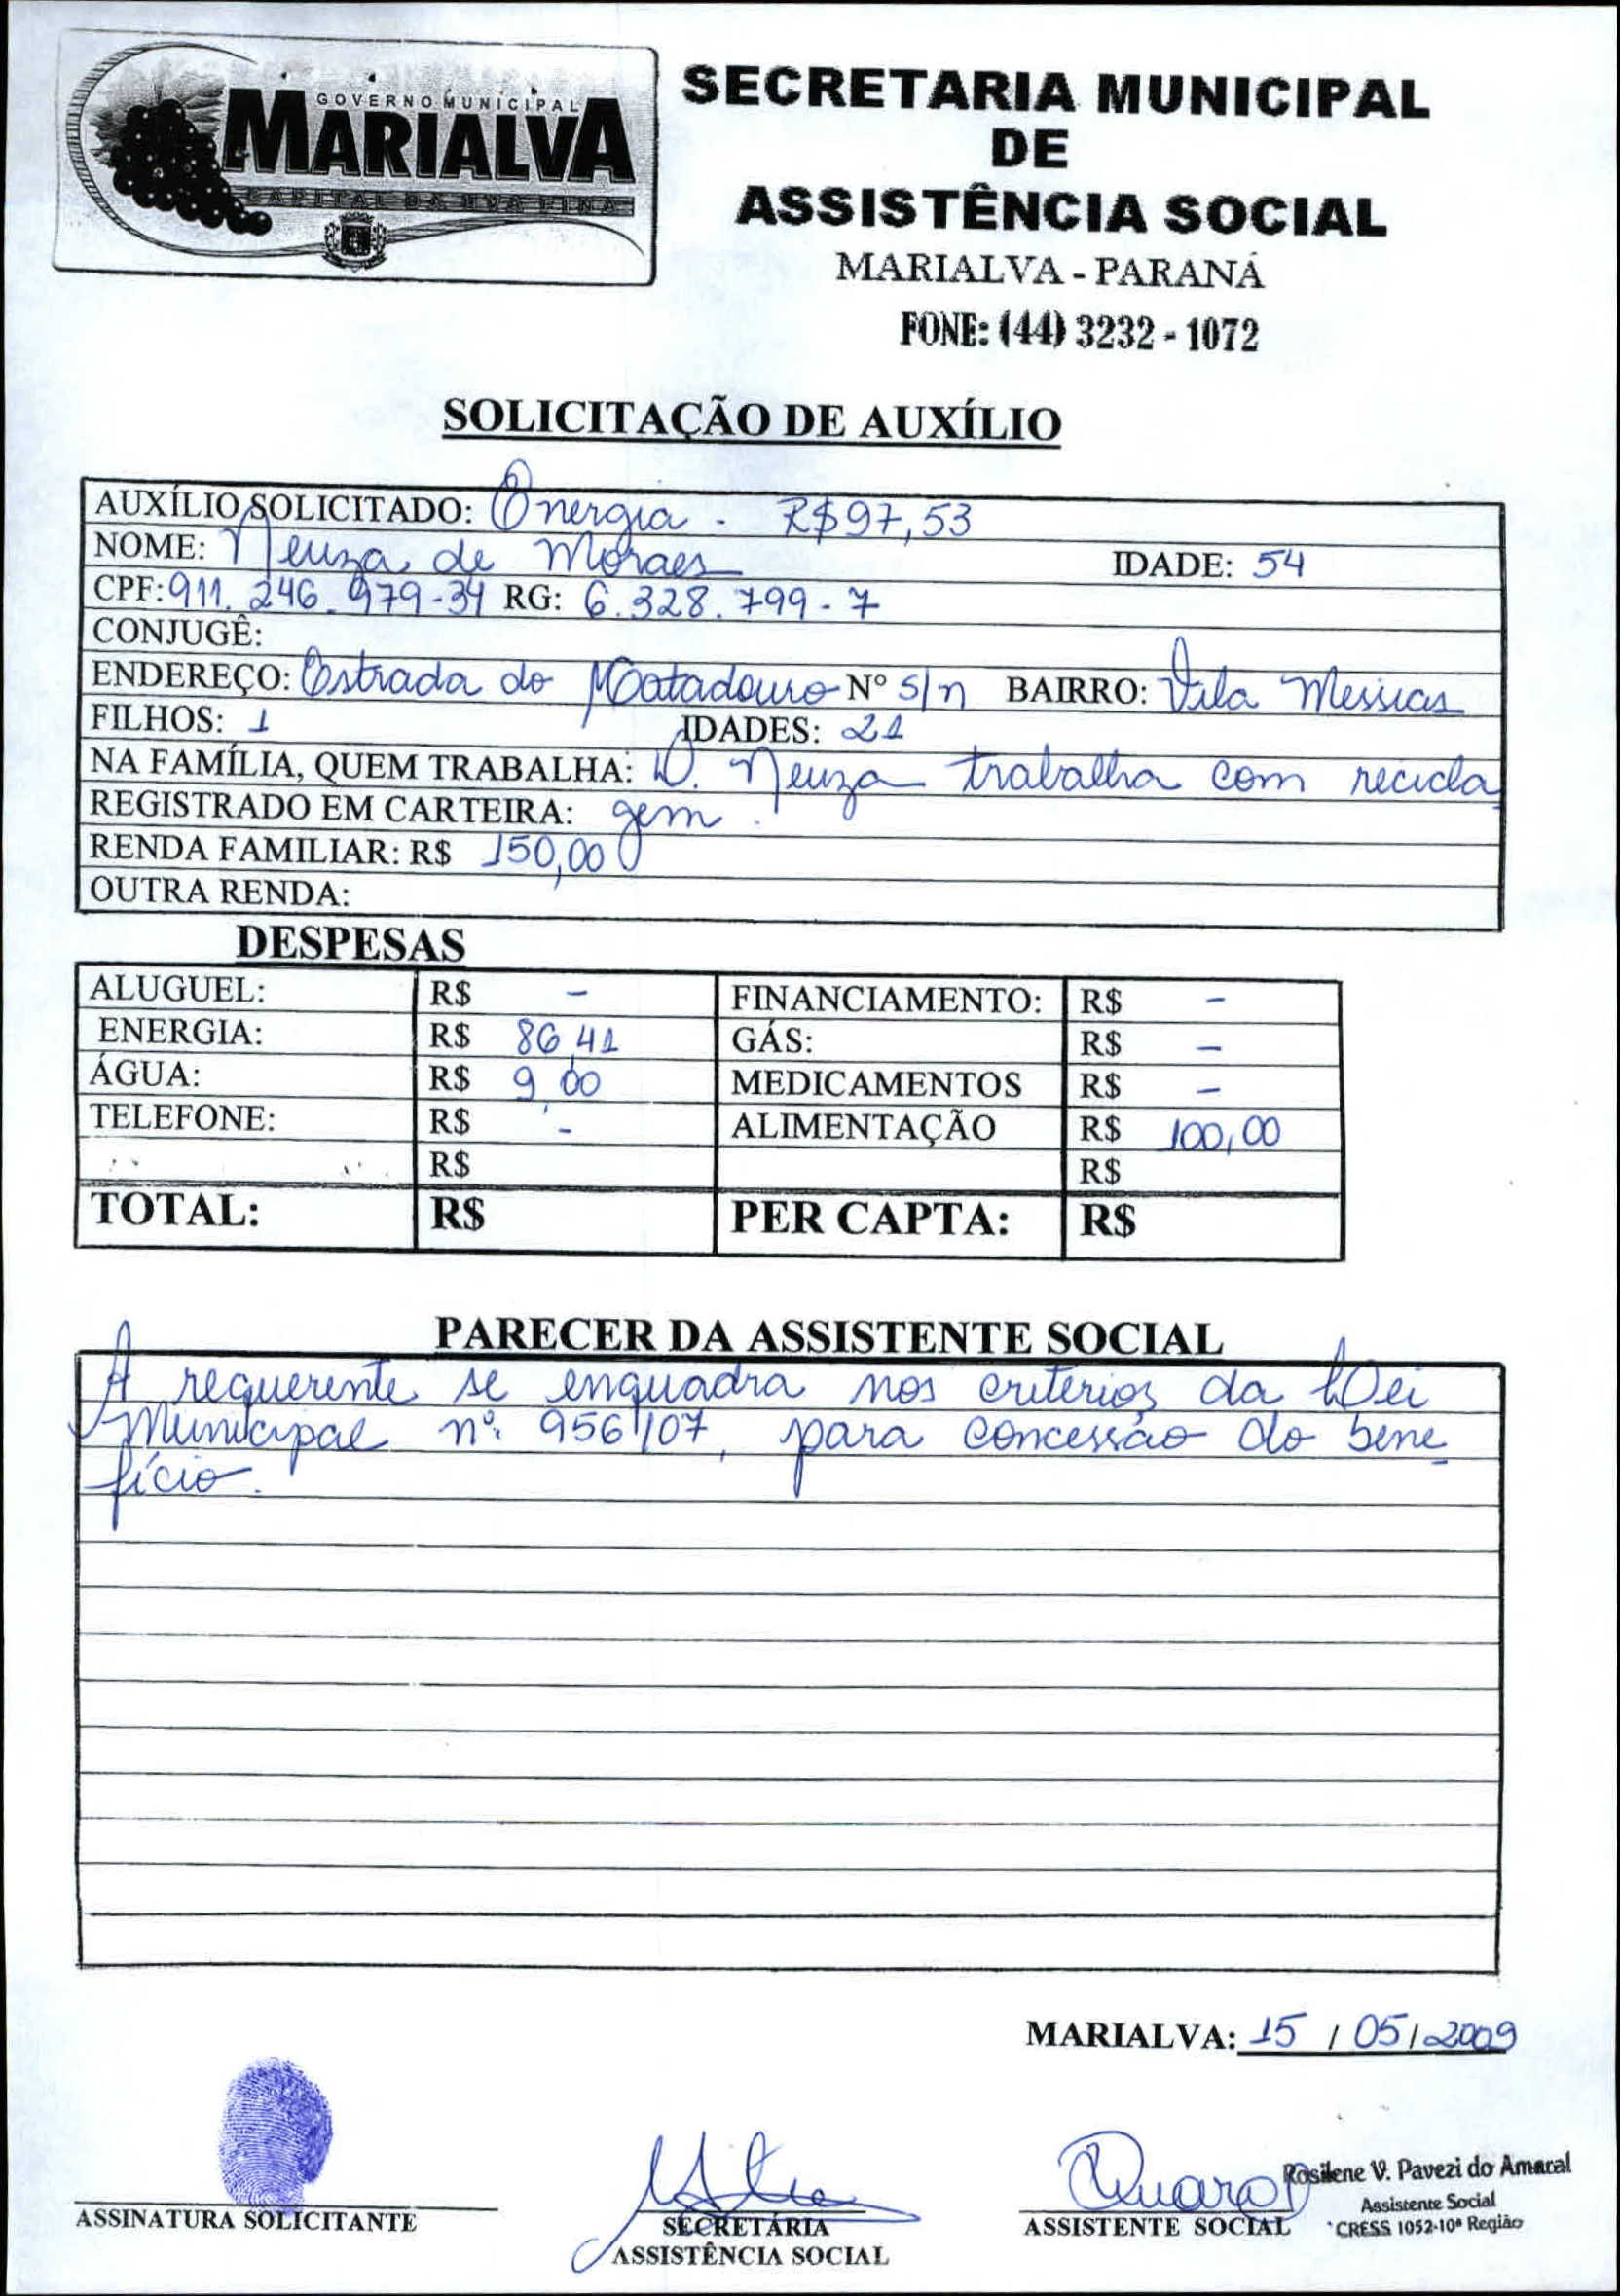 GOVERNO MUNICIPAL
MARIALVA
CAPITAL DA UVA FINA
SECRETARIA MUNICIPAL
DE
ASSISTÊNCIA SOCIAL
MARIALVA - PARANÁ
FONE: (44) 3232 - 1072
SOLICITAÇÃO DE AUXÍLIO
AUXÍLIO SOLICITADO: Energia - R$97,53
NOME: Neuza de Moraes IDADE: 54
CPF: 911.246.979-34 RG: 6.328.799-7
CONJUGÊ:
ENDEREÇO: Estrada do Matadouro Nº S/n BAIRRO: Vila Messias
FILHOS: 1 IDADES: 21
NA FAMÍLIA, QUEM TRABALHA: D. Neuza trabalha com recicla
REGISTRADO EM CARTEIRA: gem.
RENDA FAMILIAR: R$ 150,00
OUTRA RENDA:
DESPESAS
ALUGUEL: R$ - FINANCIAMENTO: R$ -
ENERGIA: R$ 86,41 GÁS: R$ -
ÁGUA: R$ 9,00 MEDICAMENTOS R$ -
TELEFONE: R$ - ALIMENTAÇÃO R$ 100,00
R$ R$
TOTAL: R$ PER CAPTA: R$
PARECER DA ASSISTENTE SOCIAL
A requerente se enquadra nos criterios da Lei
Municipal nº. 956/07, para concessão do bene
fício.
MARIALVA: 15 / 05 / 2009
Rosilene V. Pavezi do Amaral
Assistente Social
CRESS 1052-10ª Região
ASSINATURA SOLICITANTE SECRETÁRIA ASSISTENTE SOCIAL
ASSISTÊNCIA SOCIAL